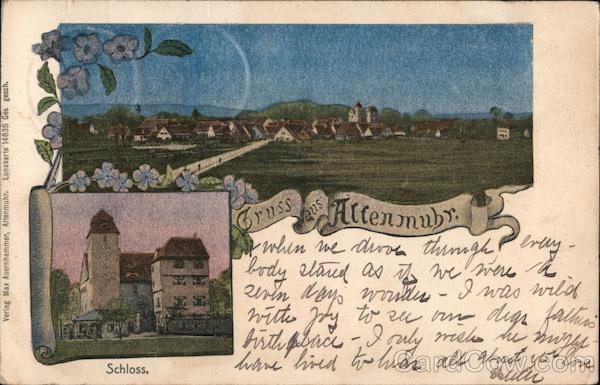 Verlag Max Auernhammer, Altenmuhr. Lunakarte 14635 Ges. gesch.
Gruss aus Altenmuhr.
Schloss.
when we drove through every-
body stared as if we were a
seven days wonder - I was wild
with joy to see our dear father's
birthplace - I only wish he might
have lived to hear all about it
Edith
CardCow.com